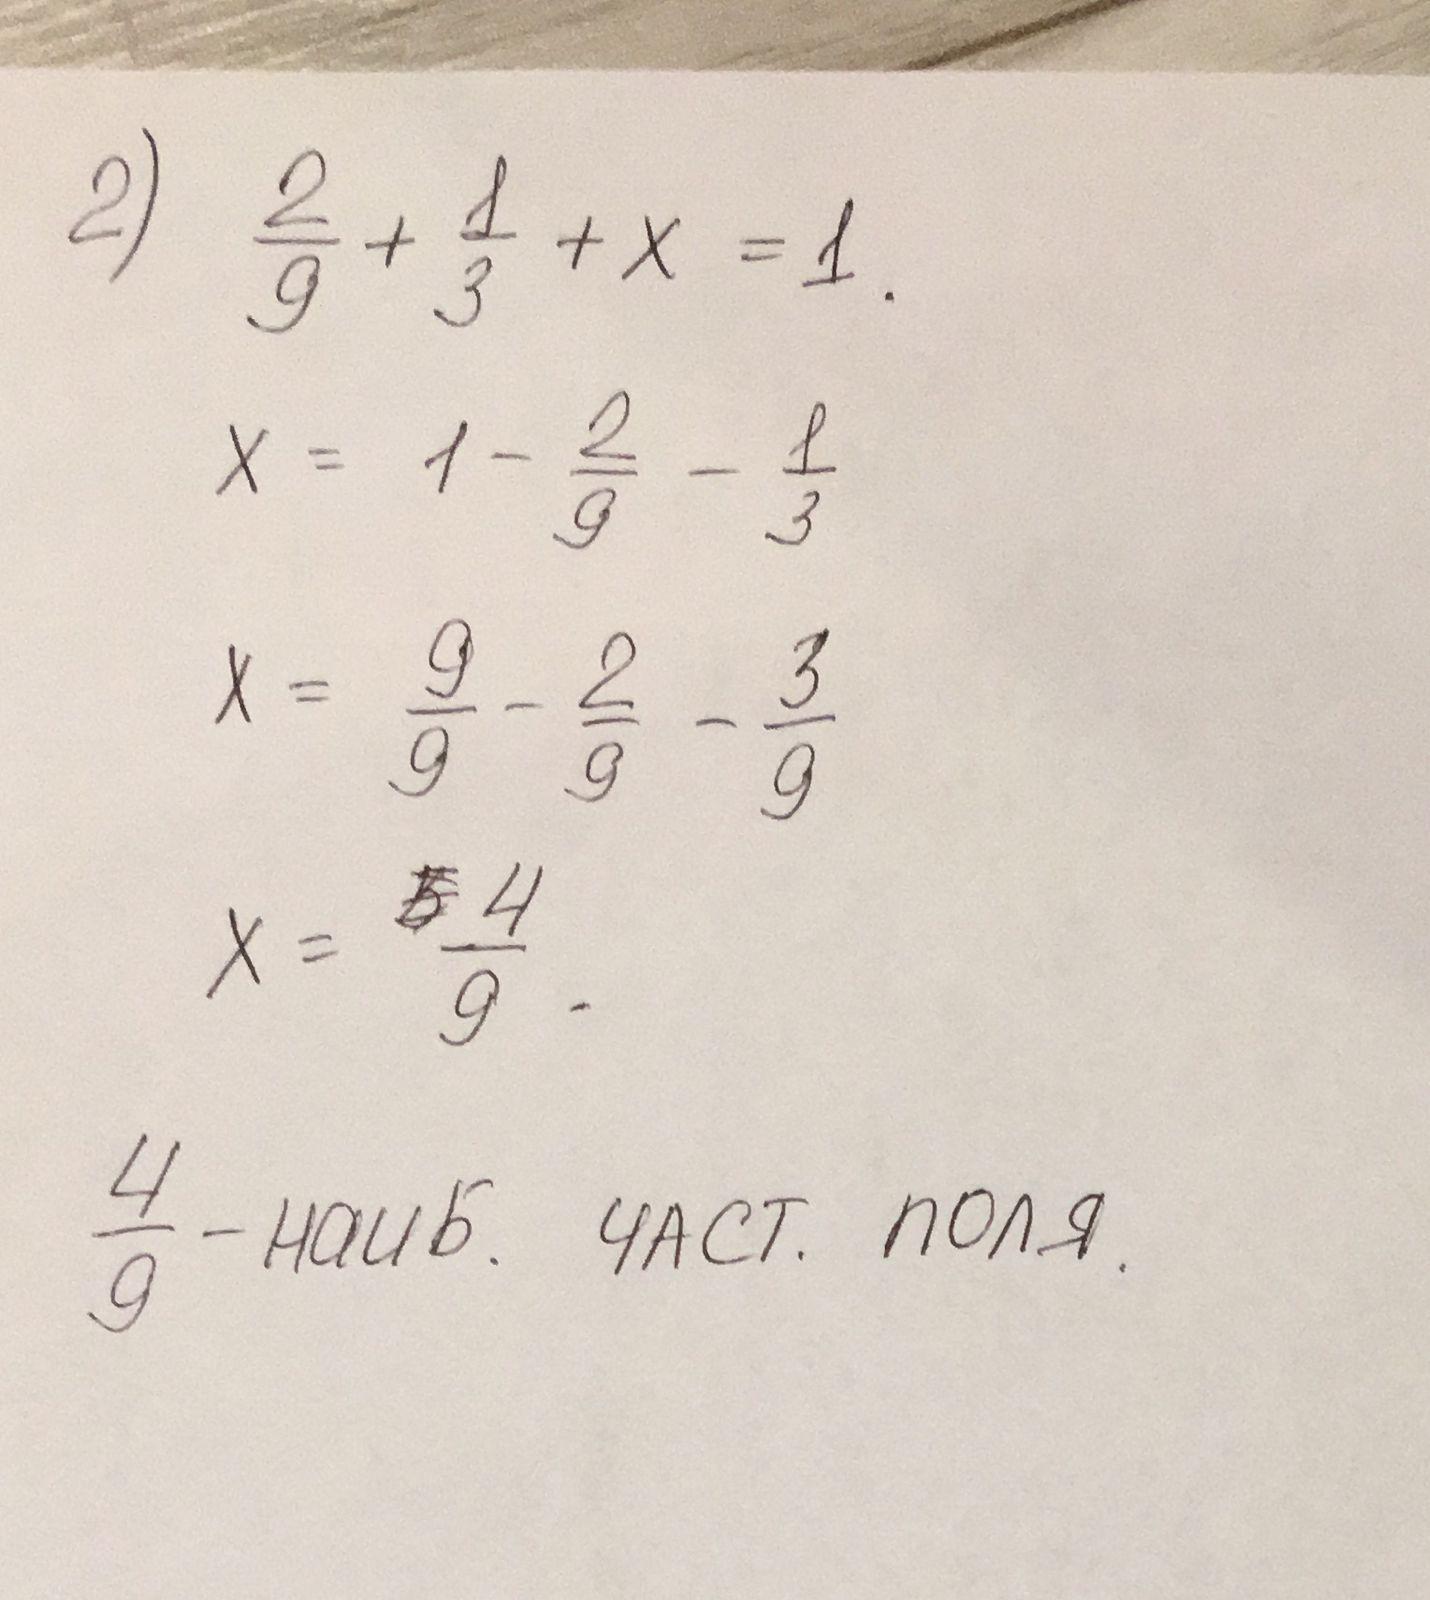 2) 2/9 + 1/3 + x = 1.
x = 1 - 2/9 - 1/3
x = 9/9 - 2/9 - 3/9
x = 4/9.
4/9 - наиб. част. поля.